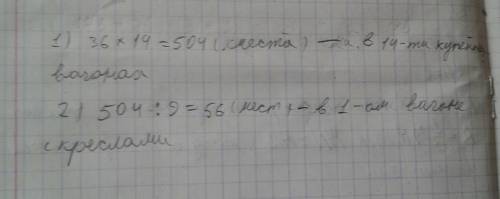 1) 36 × 14 = 504 (места) – в 14-ти купейн
вагонах
2) 504 : 9 = 56 (мест) – в 1-ом вагоне
с креслами